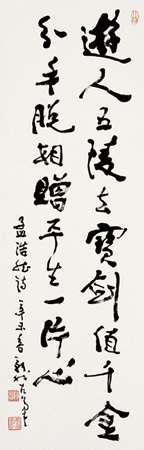 遊人五陵去寶劍值千金
分手脫相贈平生一片心
孟浩然詩 辛未春